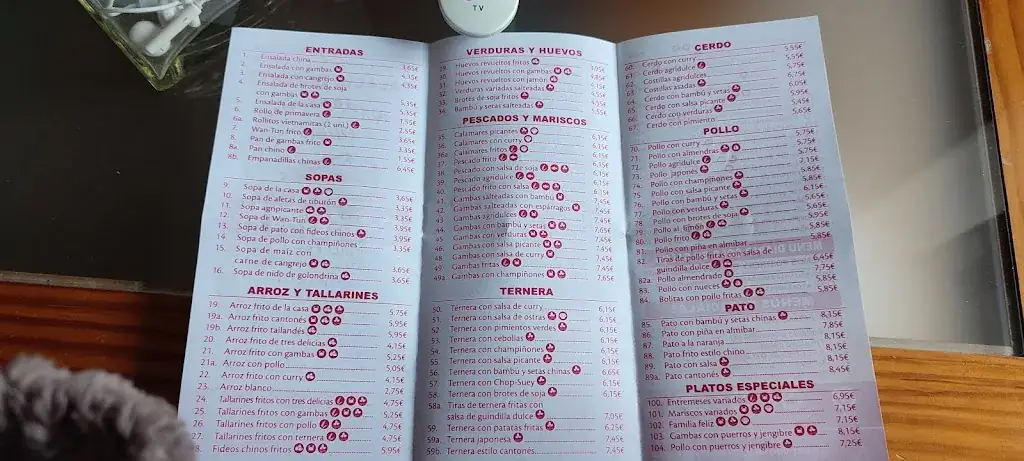 TV
ENTRADAS
1. Ensalada china
2. Ensalada con gambas 3,65€
3. Ensalada con cangrejo 4,35€
4. Ensalada de brotes de soja 4,35€
con gambas
5. Ensalada de la casa 5,35€
6. Rollo de primavera 5,35€
6a. Rollitos vietnamitas (2 uni.) 1,55€
7. Wan-Tun frito 2,55€
8. Pan de gambas frito 3,65€
8a. Pan chino 3,35€
8b. Empanadillas chinas 1,55€
6,45€
SOPAS
9. Sopa de la casa
10. Sopa de aletas de tiburón 3,65€
11. Sopa agripicante 3,35€
12. Sopa de Wan-Tun 3,35€
13. Sopa de pato con fideos chinos 3,95€
14. Sopa de pollo con champiñones 3,95€
15. Sopa de maíz con 3,35€
carne de cangrejo
16. Sopa de nido de golondrina 3,65€
3,65€
ARROZ Y TALLARINES
19. Arroz frito de la casa 5,75€
19a. Arroz frito cantonés 5,95€
19b. Arroz frito tailandés 5,95€
20. Arroz frito de tres delicias 4,15€
21. Arroz frito con gambas 5,25€
21a. Arroz con pollo 5,05€
22. Arroz frito con curry 4,15€
23. Arroz blanco 2,75€
24. Tallarines fritos con tres delicias 4,75€
25. Tallarines fritos con gambas 5,25€
26. Tallarines fritos con pollo 4,75€
27. Tallarines fritos con ternera 4,75€
28. Fideos chinos fritos 5,95€
VERDURAS Y HUEVOS
29. Huevos revueltos fritos
30. Huevos revueltos con gambas 3,95€
31. Huevos revueltos con jamón 4,85€
32. Verduras variadas salteadas
33. Brotes de soja fritos
34. Bambú y setas salteadas
PESCADOS Y MARISCOS
35. Calamares picantes 6,15€
36. Calamares con curry 6,15€
36a. Calamares fritos 6,15€
37. Pescado frito 6,15€
38. Pescado con salsa de soja 6,15€
39. Pescado agridulce 6,15€
40. Pescado frito con salsa 6,15€
41. Gambas salteadas con bambú 6,15€
42. Gambas salteadas con espárragos 7,45€
43. Gambas agridulces 7,45€
44. Gambas con bambú y setas 7,45€
45. Gambas con verduras 7,65€
46. Gambas con salsa picante 7,45€
48. Gambas con salsa de curry 7,45€
49. Gambas fritas 7,45€
49a. Gambas con champiñones 7,65€
TERNERA
50. Ternera con salsa de curry 6,15€
51. Ternera con salsa de ostras 6,15€
52. Ternera con pimientos verdes 6,15€
53. Ternera con cebollas 6,15€
54. Ternera con champiñones 6,15€
55. Ternera con salsa picante 6,15€
56. Ternera con bambú y setas chinas 6,65€
57. Ternera con Chop-Suey 6,15€
58. Ternera con brotes de soja 6,15€
58a. Tiras de ternera fritas con
salsa de guindilla dulce 7,05€
59. Ternera con patatas fritas 6,25€
59a. Ternera japonesa 7,45€
59b. Ternera estilo cantonés 7,45€
CERDO
60. Cerdo con curry 5,55€
61. Cerdo agridulce 5,55€
62. Costillas agridulces 5,75€
63. Costillas asadas 6,75€
64. Cerdo con bambú y setas 6,05€
65. Cerdo con salsa picante 5,95€
66. Cerdo con verduras 5,45€
67. Cerdo con pimiento 5,65€
POLLO
70. Pollo con curry 5,75€
71. Pollo con almendras 5,75€
72. Pollo agridulce 5,75€
73. Pollo japonés 7,15€
74. Pollo con champiñones 5,85€
75. Pollo con salsa picante 5,85€
76. Pollo con bambú y setas 6,15€
77. Pollo con verduras 5,65€
78. Pollo con brotes de soja 5,65€
79. Pollo al limón 5,95€
80. Pollo frito 5,85€
81. Pollo con piña en almíbar 5,85€
82. Tiras de pollo fritas con salsa de
guindilla dulce 6,45€
82a. Pollo almendrado 7,75€
83. Pollo con nueces 5,85€
84. Bolitas con pollo fritas 5,85€
PATO
85. Pato con bambú y setas chinas 8,15€
86. Pato con piña en almíbar 7,85€
87. Pato a la naranja 8,15€
88. Pato frito estilo chino 8,15€
89. Pato con salsa 8,15€
89a. Pato cantonés 8,45€
PLATOS ESPECIALES
100. Entremeses variados 6,95€
101. Mariscos variados 7,15€
102. Familia feliz 7,15€
103. Gambas con puerros y jengibre 8,15€
104. Pollo con puerros y jengibre 7,25€